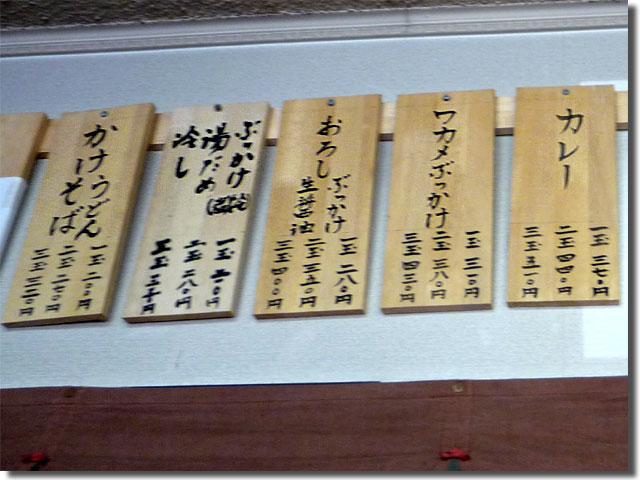 カレー
一玉 三七〇円
二玉 四四〇円
三玉 五一〇円
ワカメぶっかけ
一玉 三一〇円
二玉 三八〇円
三玉 四三〇円
おろし
ぶっかけ
生醤油
一玉 二八〇円
二玉 三五〇円
三玉 四〇〇円
ぶっかけ
湯だめ
冷し
一玉
二玉 二八〇円
三玉
かけうどん
そば
一玉 二〇〇円
二玉 二七〇円
三玉 三二〇円